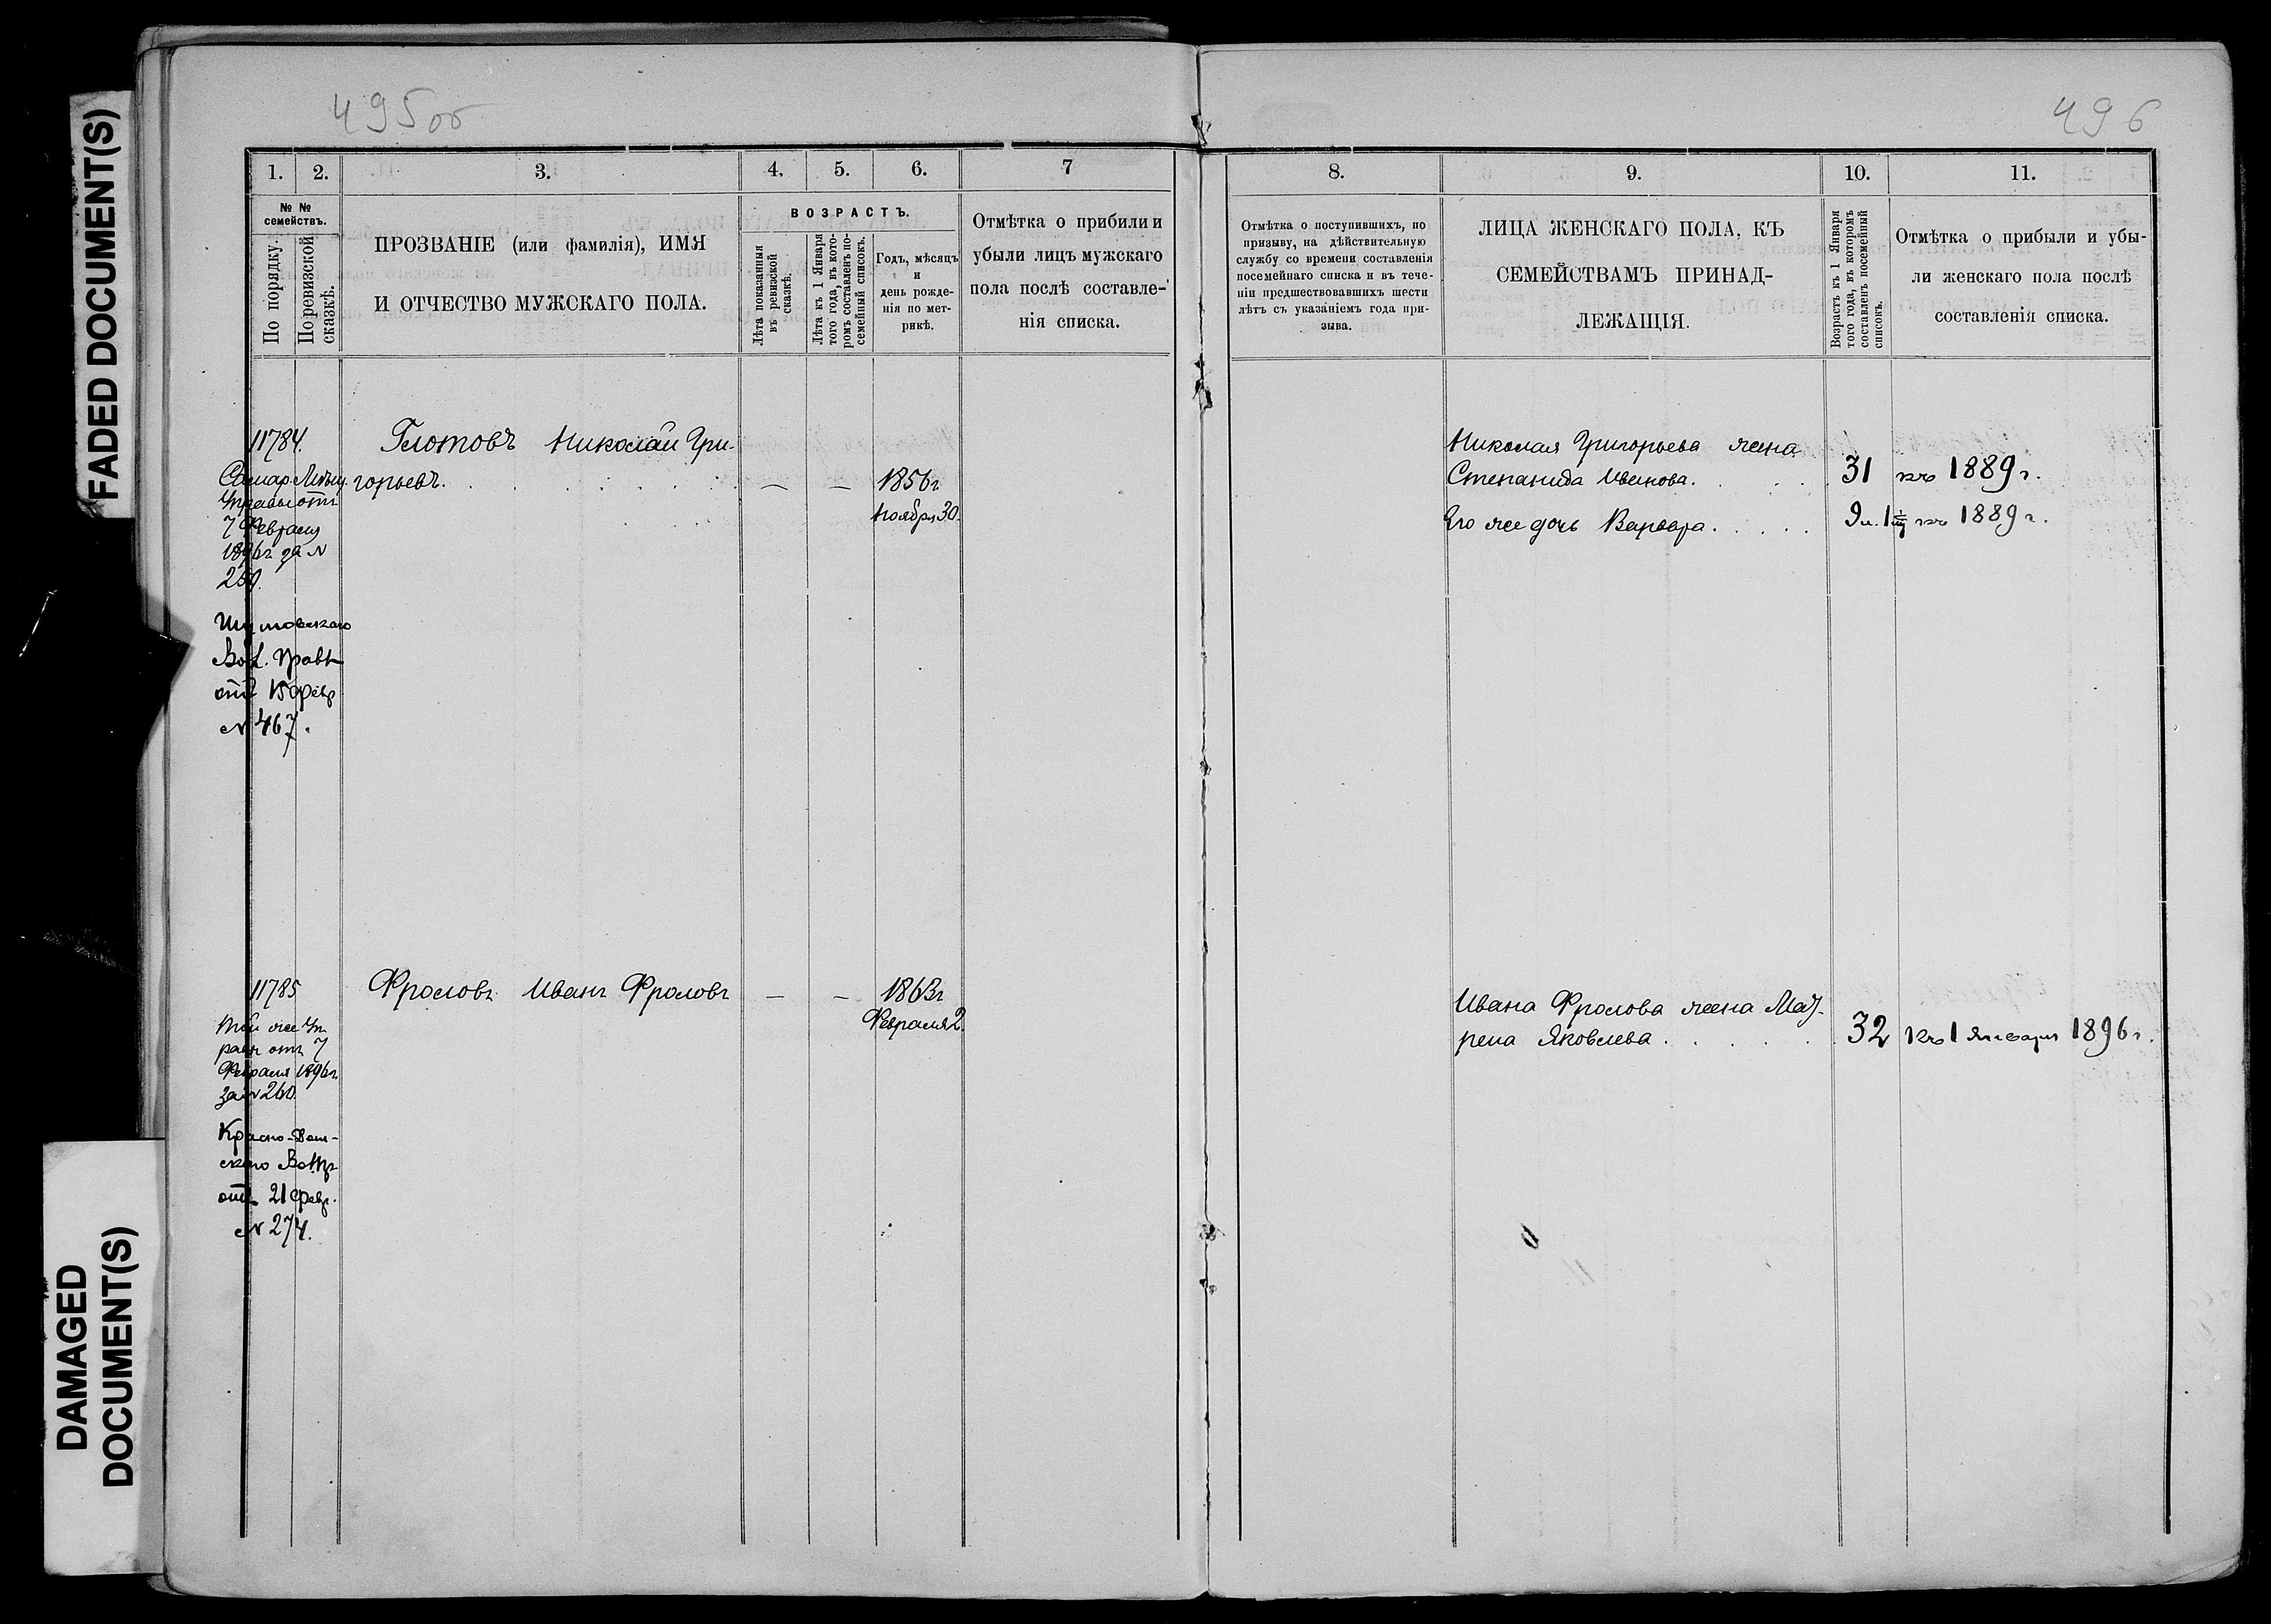 FADED DOCUMENT(S)
DAMAGED
DOCUMENT(S)
495об
1. 2. 3. 4. 5. 6. 7
№ №
семействъ.
По порядку.
По ревизской
сказкѣ.
ПРОЗВАНІЕ (или фамилія), ИМЯ
И ОТЧЕСТВО МУЖСКАГО ПОЛА.
ВОЗРАСТЪ.
Лѣта показанныя
въ ревизской
сказкѣ.
Лѣта къ 1 Января
того года, въ кото-
ромъ составленъ по-
семейный списокъ.
Годъ, мѣсяцъ
и
день рожде-
нія по мет-
рикѣ.
Отмѣтка о прибыли и
убыли лицъ мужскаго
пола послѣ составле-
нія списка.
11784. Глотовъ Николай Гри-
горьевъ. — — 1856г
Ноября 30.
Самар. Мѣщ.
Управы отъ
7 Февраля
1896г за №
260.
Вол. Правл
отъ 15 февр
№ 467.
11785 Фроловъ Иванъ Фроловъ — — 1863г
Февраля 2.
Той же Уп
равы отъ 7
Февраля 1896г.
за № 260.
отъ 21 февр.
№ 274.
496
8. 9. 10. 11.
Отмѣтка о поступившихъ, по
призыву, на дѣйствительную
службу со времени составленія
посемейнаго списка и въ тече-
ніи предшествовавшихъ шести
лѣтъ съ указаніемъ года при-
зыва.
ЛИЦА ЖЕНСКАГО ПОЛА, КЪ
СЕМЕЙСТВАМЪ ПРИНАД-
ЛЕЖАЩІЯ.
Возрастъ къ 1 Января
того года, въ которомъ
составленъ посемейный
списокъ.
Отмѣтка о прибыли и убы-
ли женскаго пола послѣ
составленія списка.
Николая Григорьева жена
Степанида Иванова. 31 къ 1889 г.
Его же дочь Варвара. 9 м. къ 1889 г.
Ивана Фролова жена Мат-
рена Яковлева. 32 къ 1 Января 1896 г.